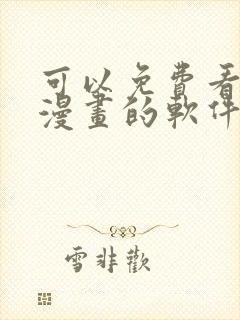 可以免費看
漫畫的軟件
雪非歡